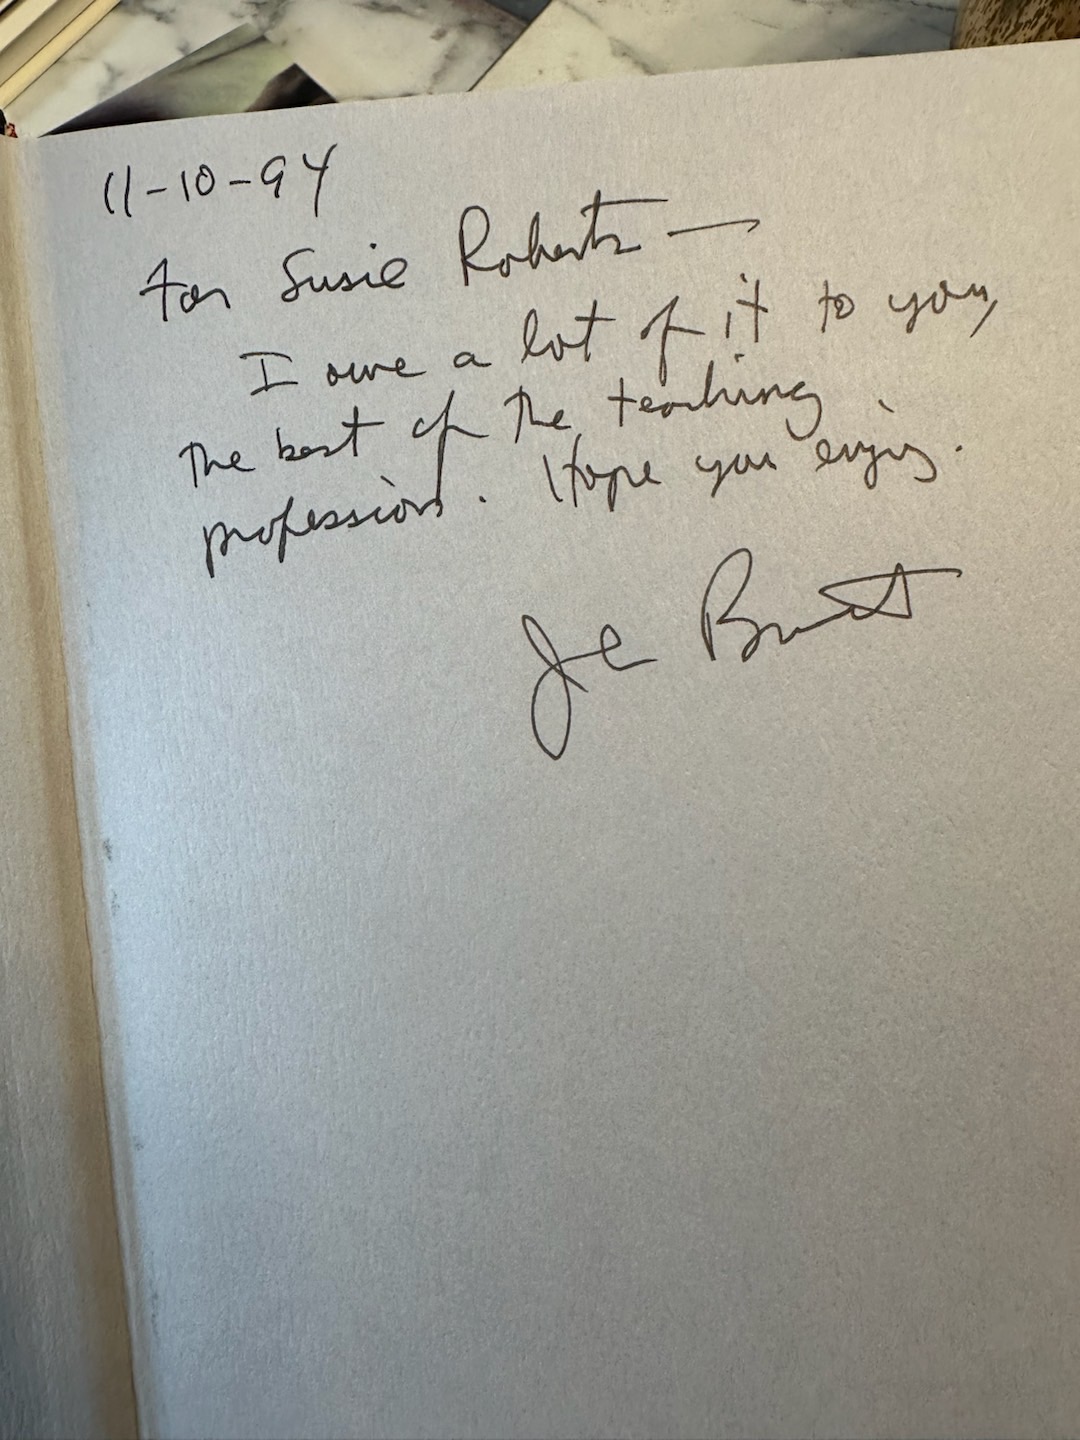 11-10-94
For Susie Roberts —
I owe a lot of it to you,
the best of the teaching
profession. Hope you enjoy.